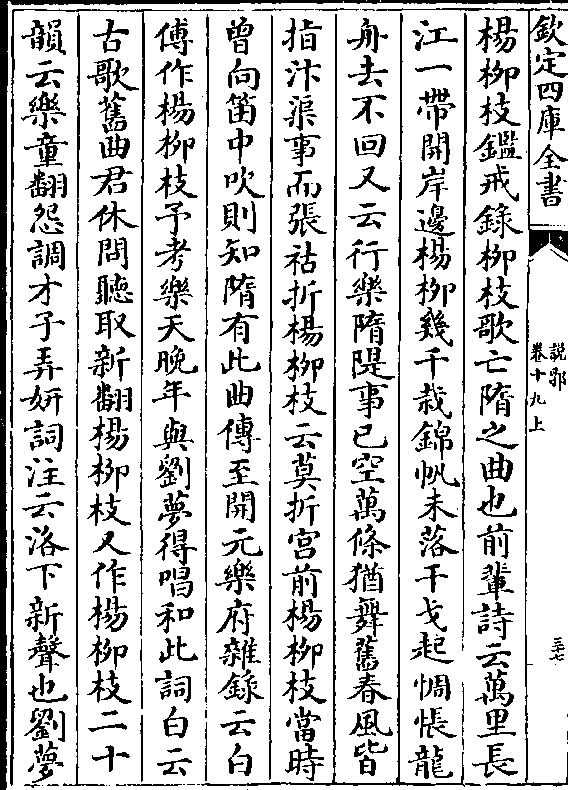 欽定四庫全書
說郛
卷十九上
三十七
楊柳枝鑑戒錄柳枝歌亡隋之曲也前輩詩云萬里長
江一帶開岸邊楊柳幾千栽錦帆未落干戈起惆悵龍
舟去不回又云行樂隋隄事已空萬條猶舞舊春風皆
指汴渠事而張祜折楊柳枝云莫折宫前楊柳枝當時
曾向笛中吹則知隋有此曲傳至開元樂府雜錄云白
傅作楊柳枝予考樂天晚年與劉夢得唱和此詞白云
古歌舊曲君休問聽取新翻楊柳枝又作楊柳枝二十
韻云樂童翻怨調才子弄妍詞注云洛下新聲也劉夢